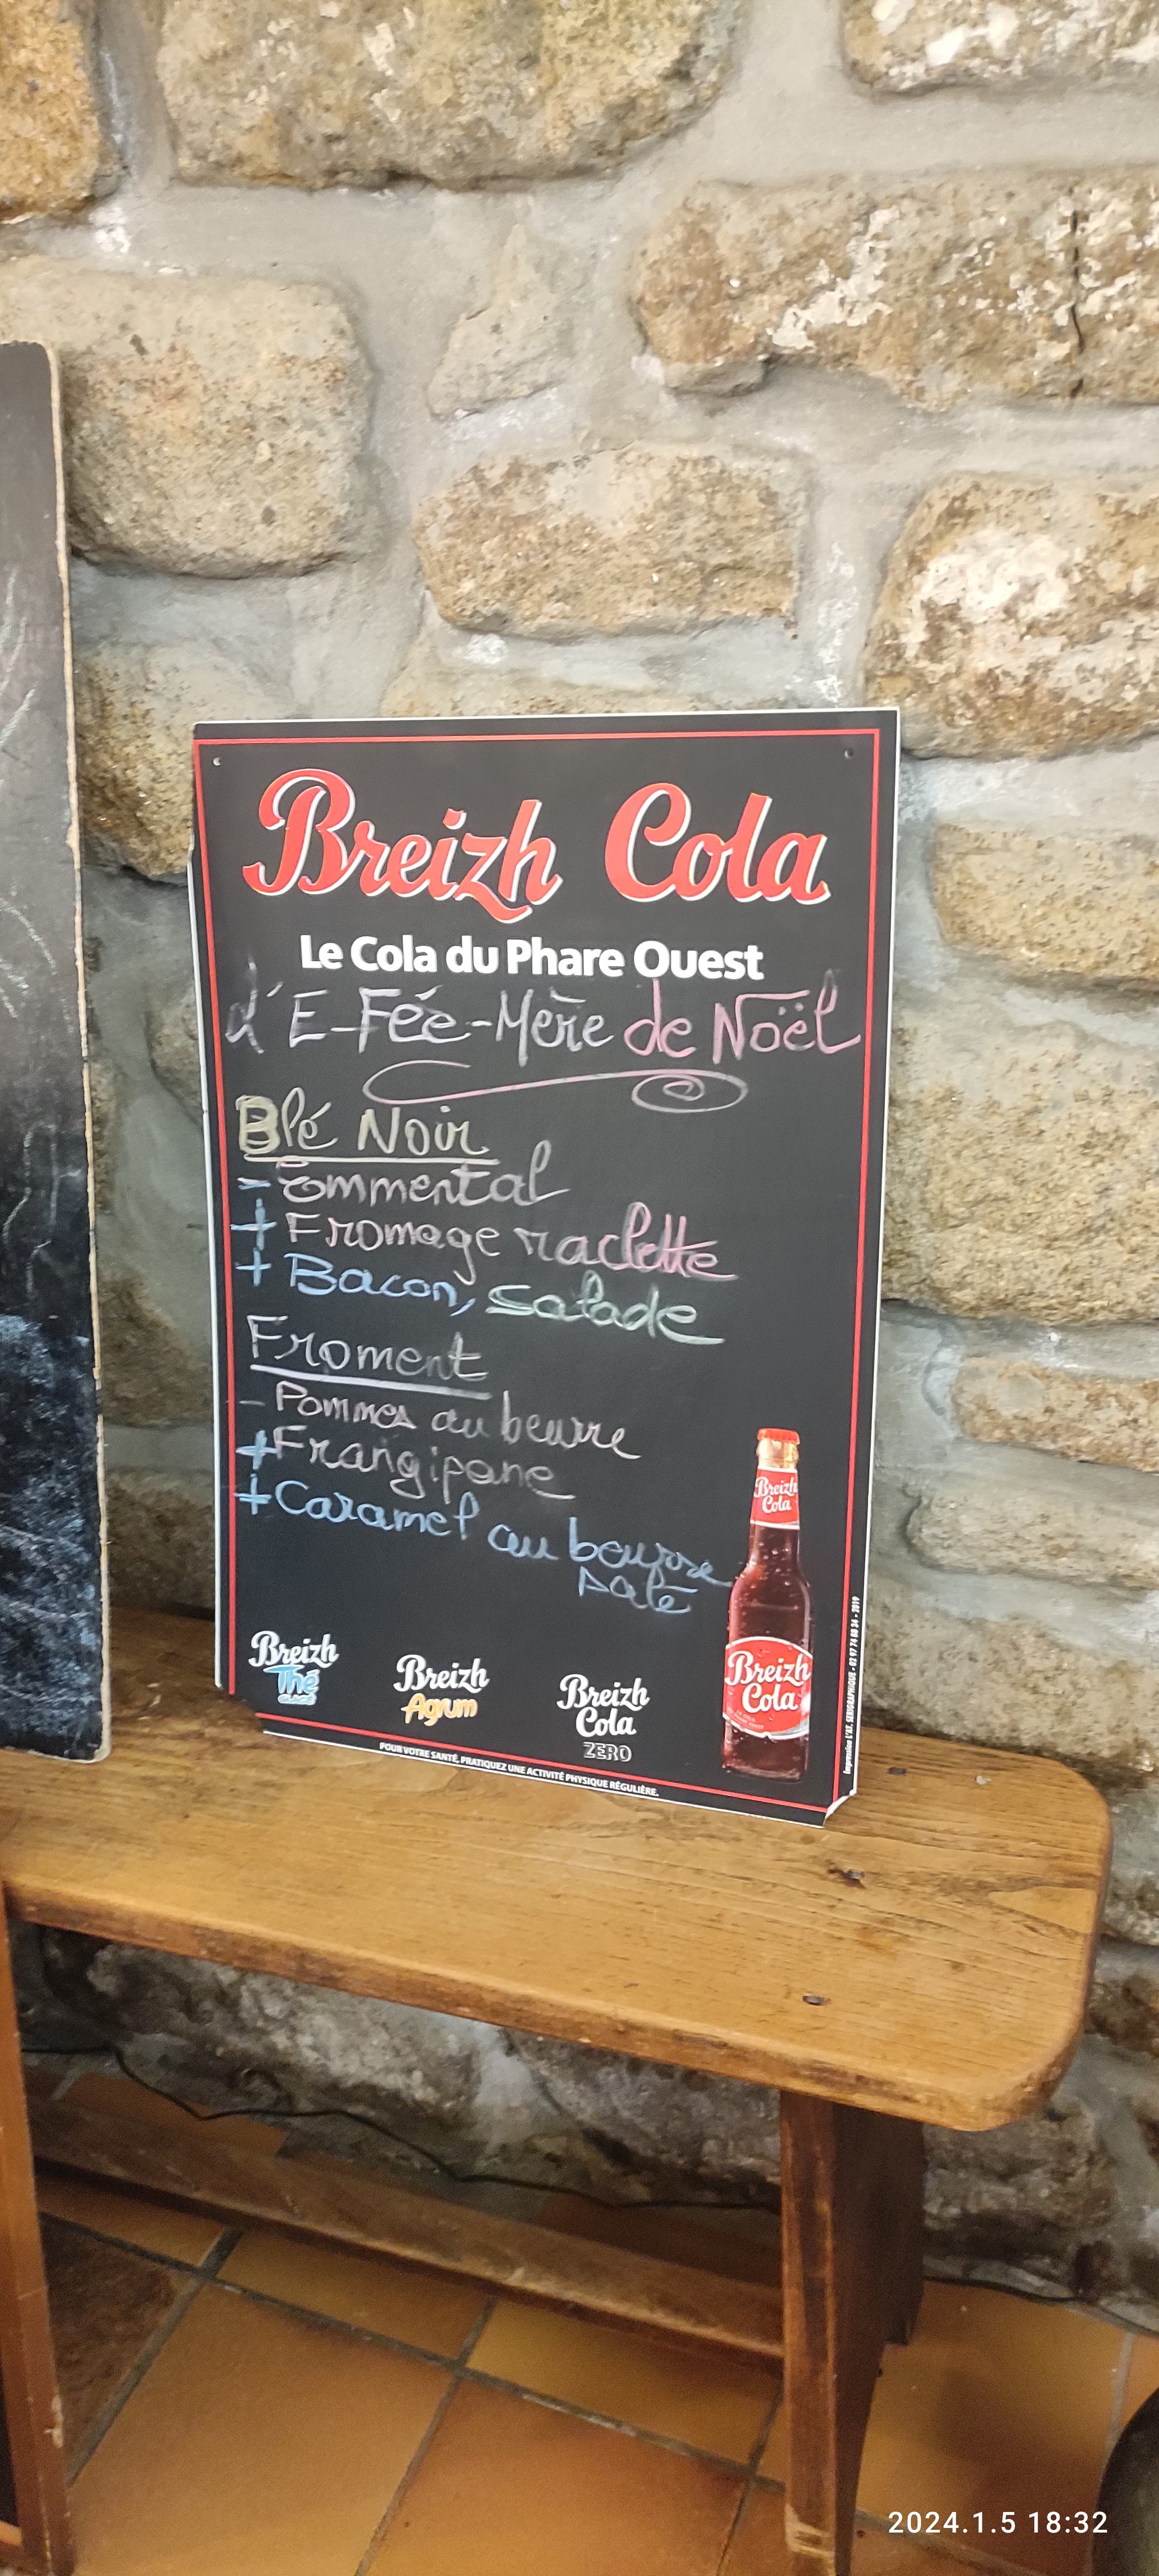 Breizh Cola
Le Cola du Phare Ouest
d'E-Fée-Mère de Noël
Blé Noir
- Emmental
+ Fromage raclette
+ Bacon, salade
Froment
- Pommes au beurre
+ Frangipane
+ Caramel au beurre
salé
Breizh
Cola
Breizh
Cola
Breizh
Thé
GLACÉ
Breizh
Agrum
Breizh
Cola
ZERO
POUR VOTRE SANTÉ, PRATIQUEZ UNE ACTIVITÉ PHYSIQUE RÉGULIÈRE.
Impression L'AT. SERIGRAPHIQUE - 02 97 74 08 34 - 2019
2024.1.5 18:32